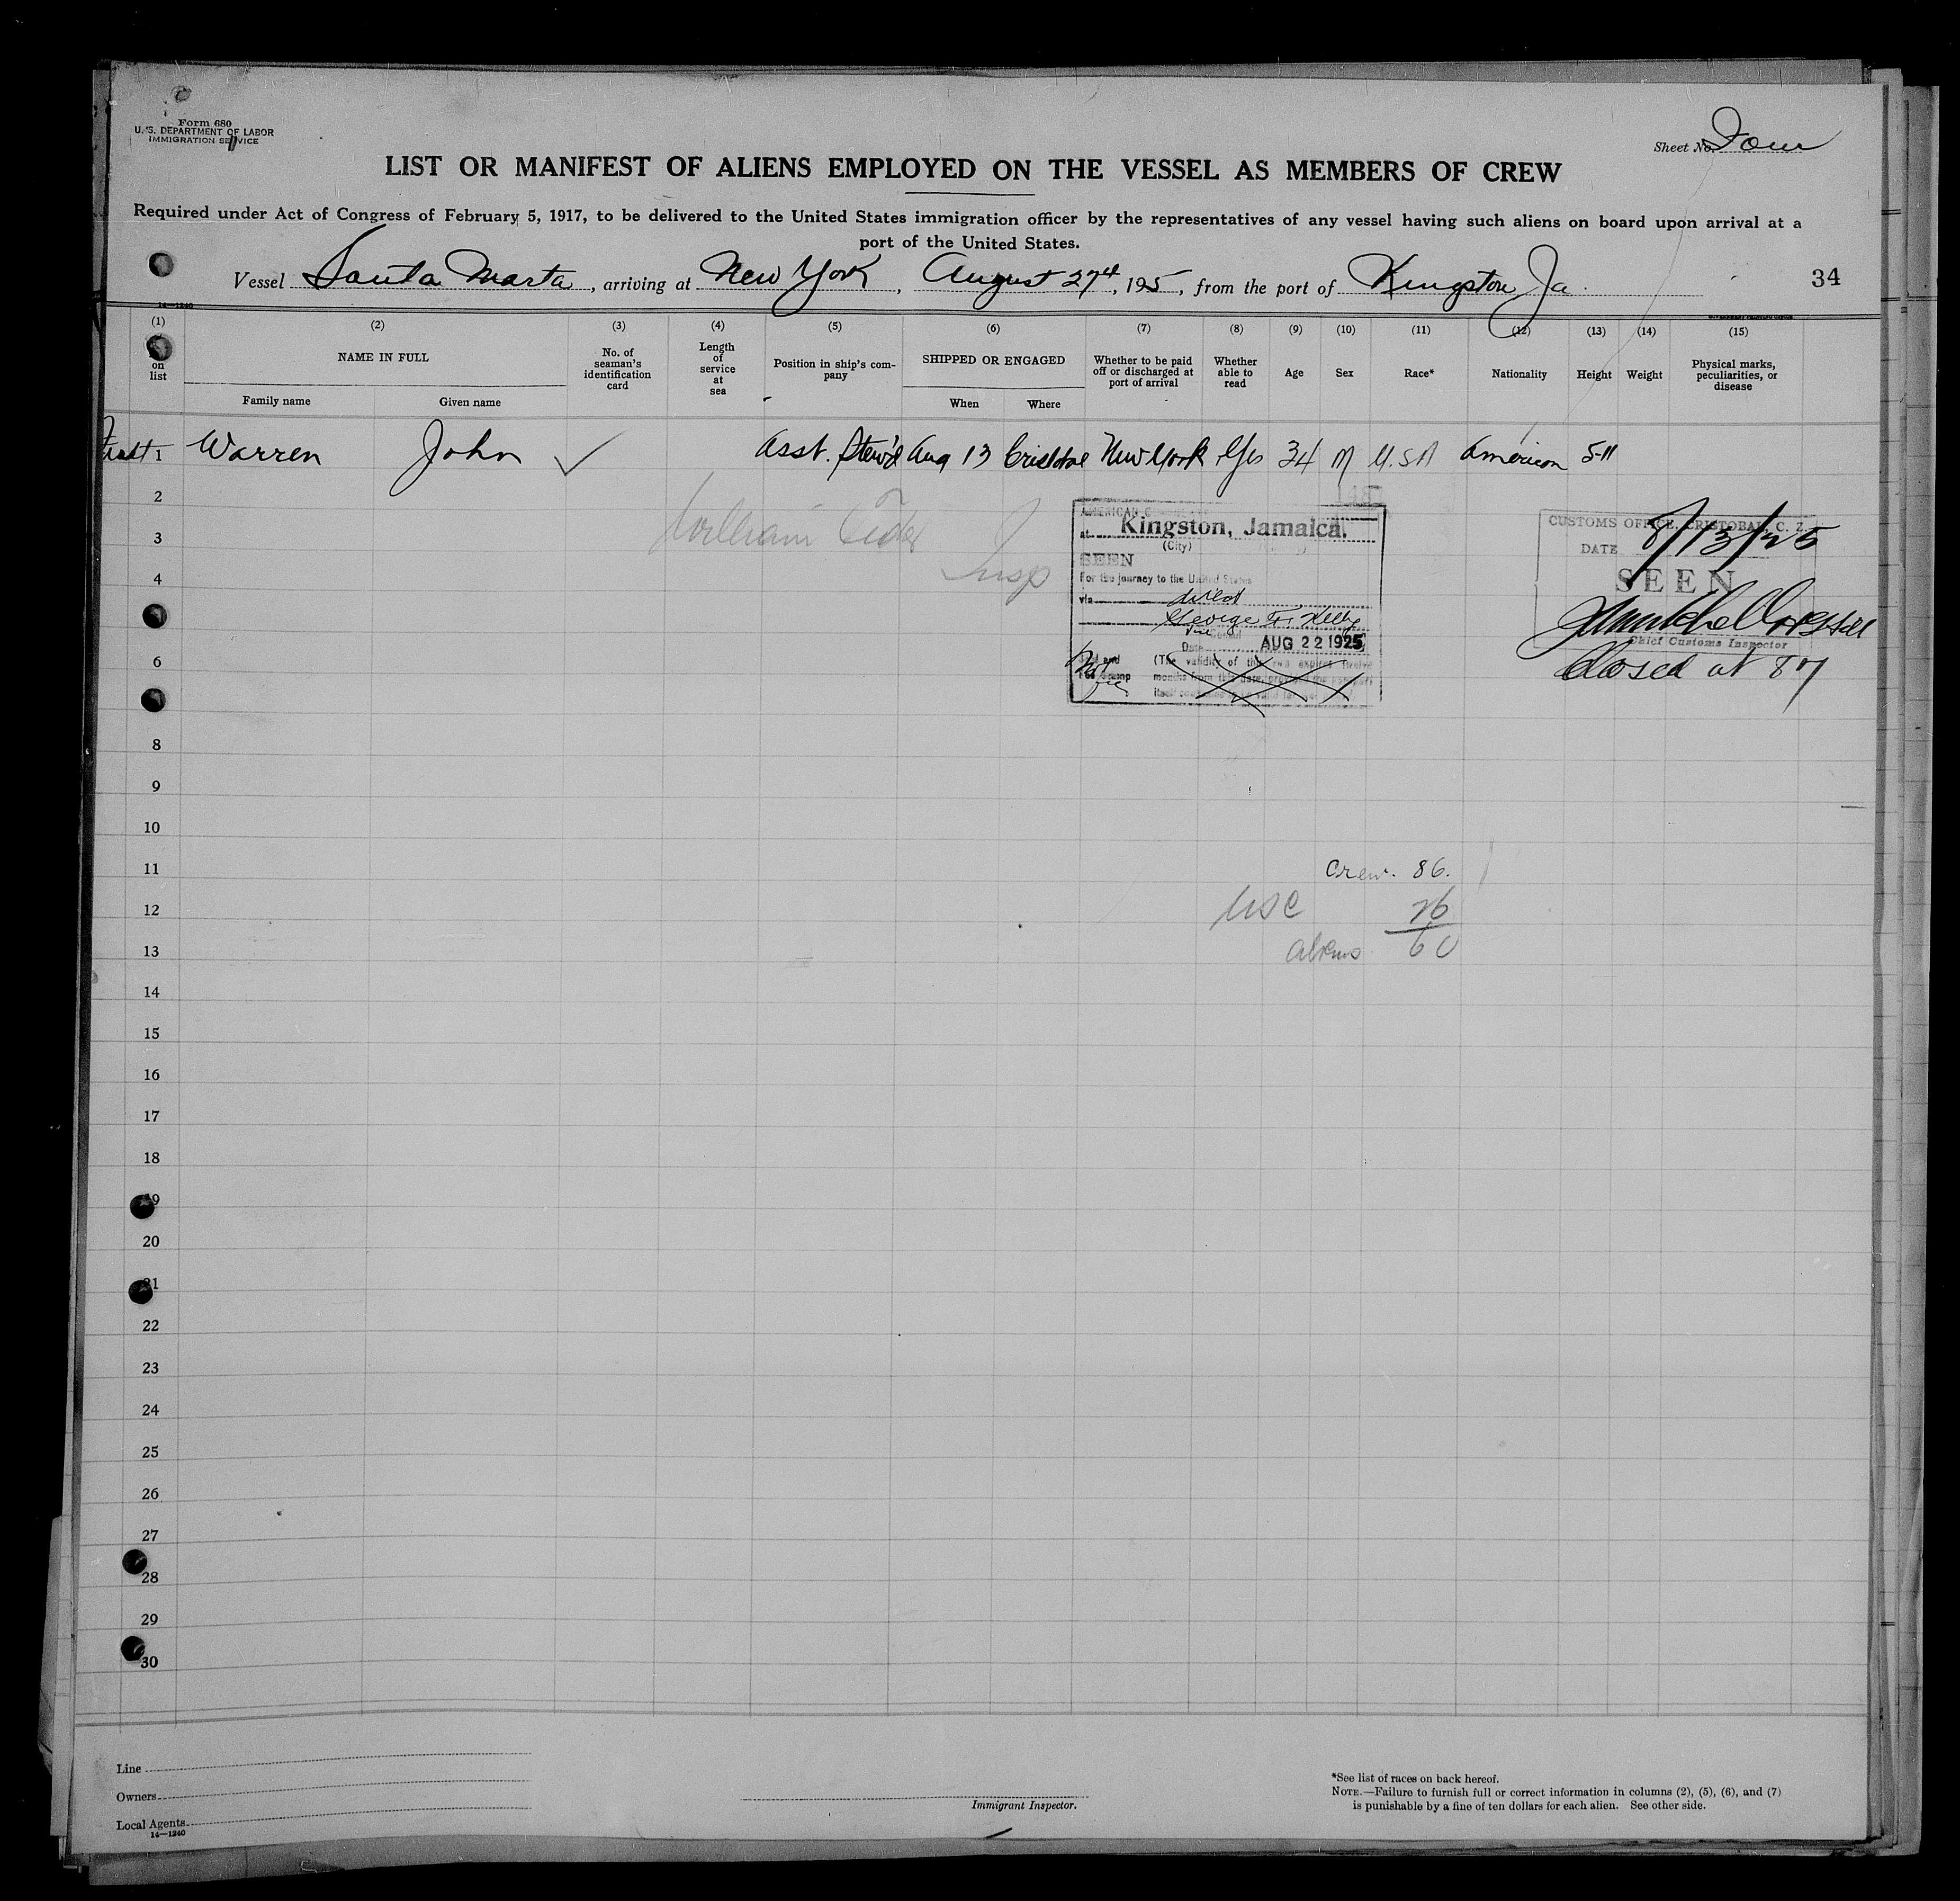 Form 680
U. S. DEPARTMENT OF LABOR
IMMIGRATION SERVICE
Sheet No. Four
LIST OR MANIFEST OF ALIENS EMPLOYED ON THE VESSEL AS MEMBERS OF CREW
Required under Act of Congress of February 5, 1917, to be delivered to the United States immigration officer by the representatives of any vessel having such aliens on board upon arrival at a
port of the United States.
Vessel Santa Marta, arriving at New York, August 27th, 1925, from the port of Kingston Ja.
34
14—1240
(1) (2) (3) (4) (5) (6) (7) (8) (9) (10) (11) (12) (13) (14) (15)
on list
NAME IN FULL
Family name
Given name
No. of seaman's identification card
Length of service at sea
Position in ship's company
SHIPPED OR ENGAGED
When
Where
Whether to be paid off or discharged at port of arrival
Whether able to read
Age
Sex
Race*
Nationality
Height
Weight
Physical marks, peculiarities, or disease
1 Warren John ✓ Asst. Stew'd Aug 13 Cristobal New York Yes 34 M U.S.A American 5-11
2
3
4
6
8
9
10
11
12
13
14
15
16
17
18
19
20
21
22
23
24
25
26
27
28
29
30
William
Insp
AMERICAN
at Kingston, Jamaica.
(City)
SEEN
For the journey to the United States
via direct
George F. Kelly
Vice Consul
Date AUG 22 1925
(The validity of this visa expires twelve
months from this date, provided the passport
CUSTOMS OFFICE, CRISTOBAL, C. Z.
DATE 8/13/25
SEEN
Chief Customs Inspector
Closed at 87
Crew. 86.
USC 26
aliens 60
Line
Owners
Local Agents
14—1240
Immigrant Inspector.
*See list of races on back hereof.
NOTE.—Failure to furnish full or correct information in columns (2), (5), (6), and (7)
is punishable by a fine of ten dollars for each alien. See other side.